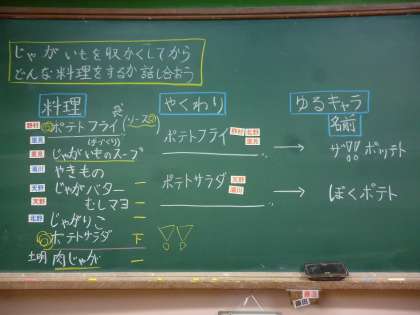 じゃがいもを収かくしてから
どんな料理をするか話し合おう
料理
野村 ポテトフライ(ソース)
(手づくり)
じゃがいものスープ
湯川 やきもの
天野 じゃがバター
天野 むしマヨ
北野 じゃがりこ
ポテトサラダ 下
土明 肉じゃが
やくわり
ポテトフライ 野村 北野
ポテトサラダ 天野
湯川
ゆるキャラ
名前
ザ!!ポッテト
ぼくポテト